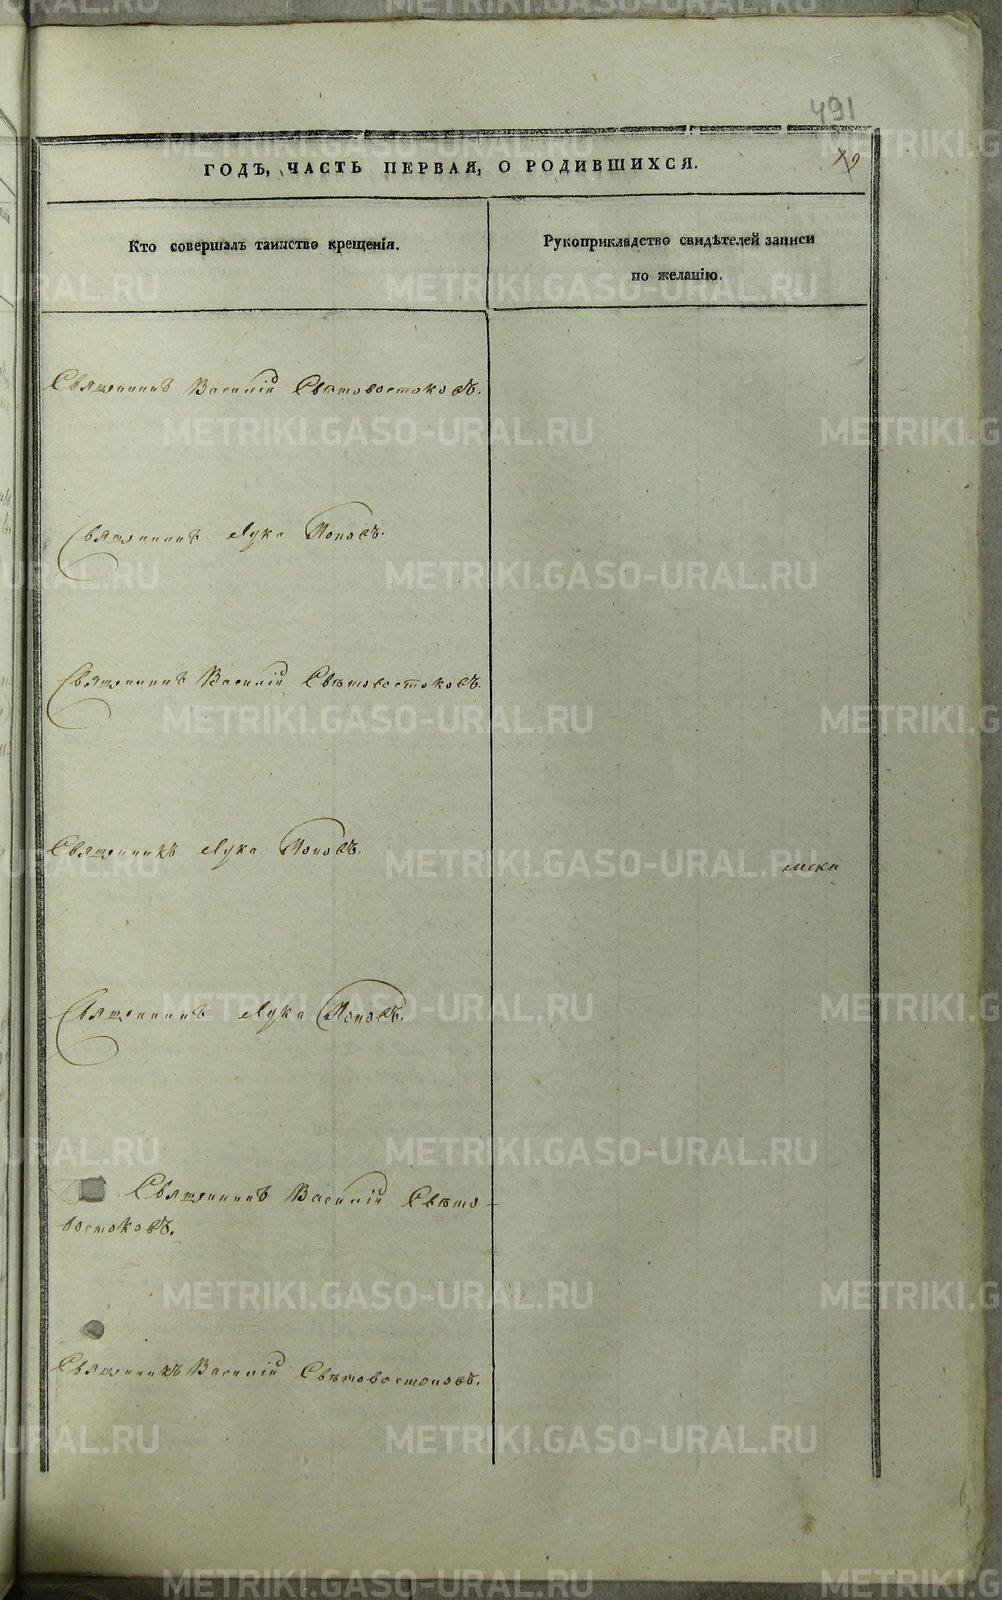 491
ГОДЪ, ЧАСТЬ ПЕРВАЯ, О РОДИВШИХСЯ.
Кто совершалъ таинство крещенія.
Рукоприкладство свидѣтелей записи
по желанію.
Священникъ Василій Свѣтовостоковъ.
Священникъ Лука Поповъ.
Священникъ Василій Свѣтовостоковъ.
Священникъ Лука Поповъ.
Священникъ Лука Поповъ.
Священникъ Василій Свѣто-
востоковъ.
Священникъ Василій Свѣтовостоковъ.
METRIKI.GASO-URAL.RU